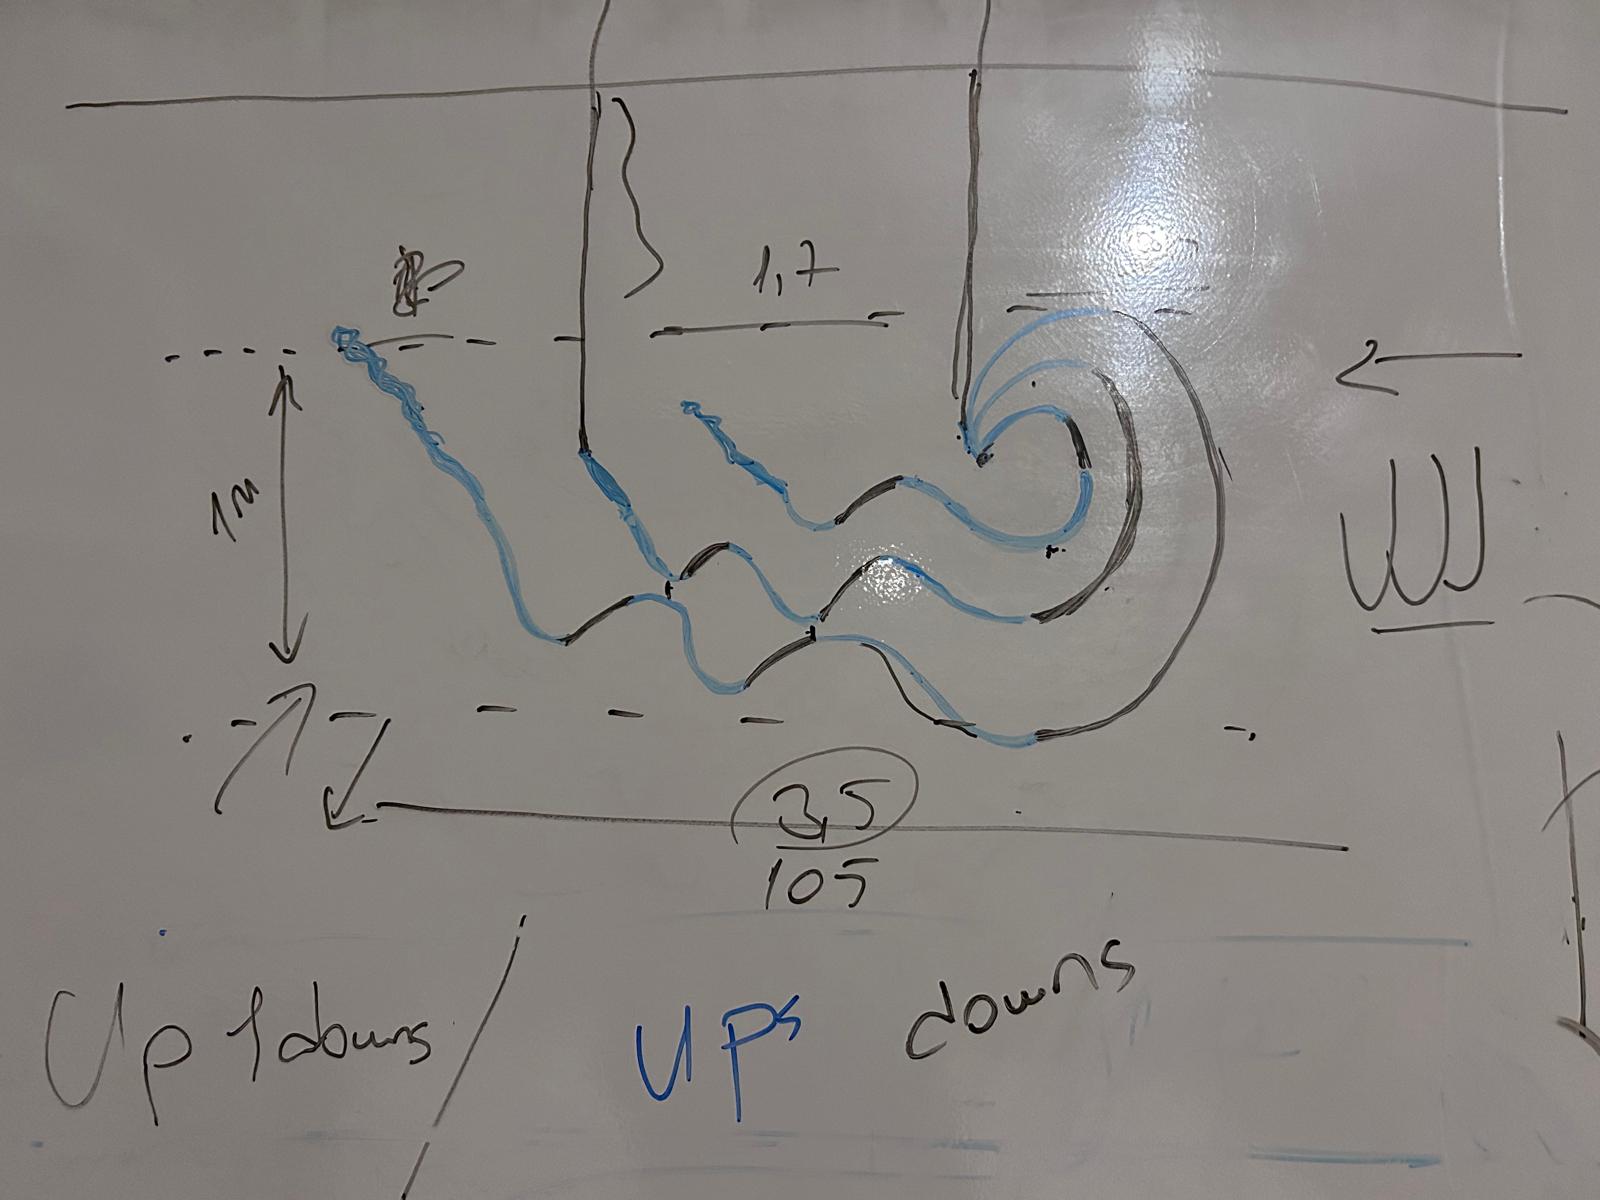 1,7
1M
3,5
105
Up 1 downs / UPs downs